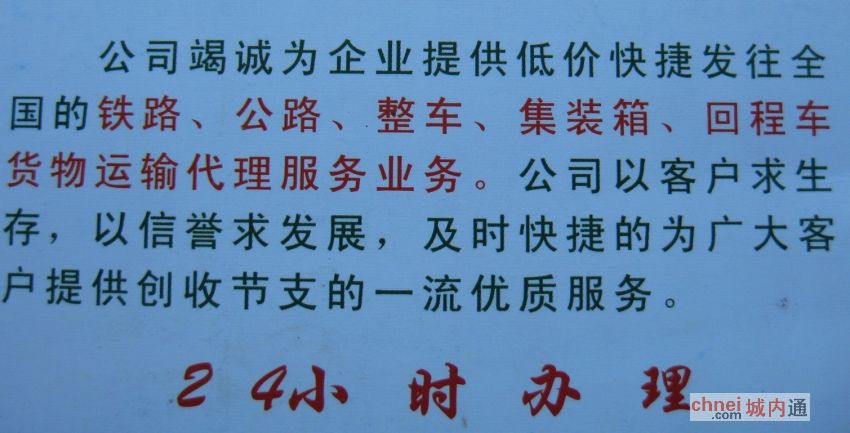 公司竭诚为企业提供低价快捷发往全
国的铁路、公路、整车、集装箱、回程车
货物运输代理服务业务。公司以客户求生
存，以信誉求发展，及时快捷的为广大客
户提供创收节支的一流优质服务。
24小时办理
chnei.com城内通